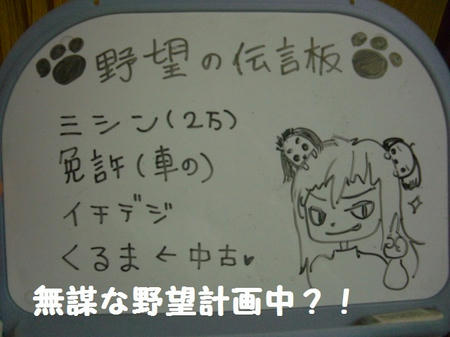 野望の伝言板
ミシン(2万)
免許(車の)
イチデジ
くるま ← 中古♥
無謀な野望計画中?!